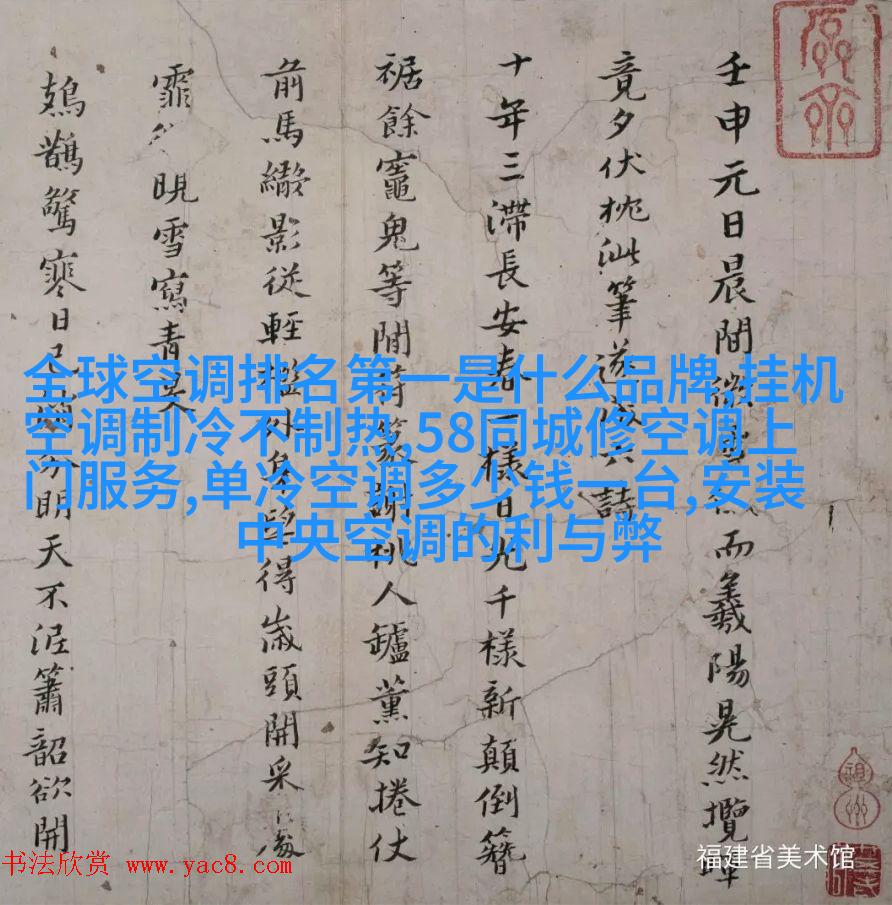 壬申元日晨間而羲陽晃然攬
竟夕伏枕泚筆遂詩
十年三滯長安春一樣日光千樣新顛倒簪
裾餘竈鬼等閒符篆謝桃人鑪薰知捲仗
前馬繖影從輕外身得歲頭開采
霏晛雪寫青旻
鳷鵲驚寒日已分明天不涊簫韶欲開
全球空调排名第一是什么品牌,挂机
空调制冷不制热,58同城修空调上
门服务,单冷空调多少钱一台,安装
中央空调的利与弊
福建省美术馆
书法欣赏 www.yac8.com